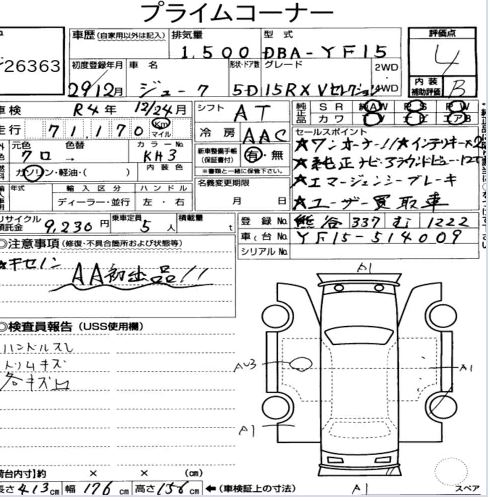 プライムコーナー
26363
車歴(自家用以外は記入)
排気量
型式
評価点
1,500
DBA-YF15
4
初度登録年月
車名
形状・ドア数
グレード
2WD
4WD
29/12月
ジューク
5D
15RX Vセレクション
内装
補助評価
B
車検
R4年 12/24月
シフト
AT
純正
SR
AW
PS
PW
カワ
エアB
走行
71,170
Km
マイル
冷房
AAC
セールスポイント
★ワンオーナー!!★インテリキー×2
元色
色替
カラーNo.
クロ
KH3
新車整備手帳
(保証書付)
有・無
★純正ナビ・アラウンドビュー・
★エマージェンシーブレーキ
★ユーザー買取車
ガソリン・軽油・( )
内装色
※書類と一緒に保管して下さい。
年式
輸入区分
ハンドル
名義変更期限
ディーラー・並行
左・右
月 日
リサイクル
預託金
9,230円
乗車定員
5人
積載量
t
登録No.
熊谷 337 む 1222
車台No.
YF15-514009
シリアルNo.
◎注意事項(修復・不具合箇所および状態等)
★キセノン
AA初出品!!
◎検査員報告(USS使用欄)
ハンドルスレ
トリムキズ
各キズ凹
A1
AU3
A1
A1
A1
スペア
荷台内寸)約 × × (cm)
長さ 413cm 幅 176cm 高さ 156cm ←(車検証上の寸法)